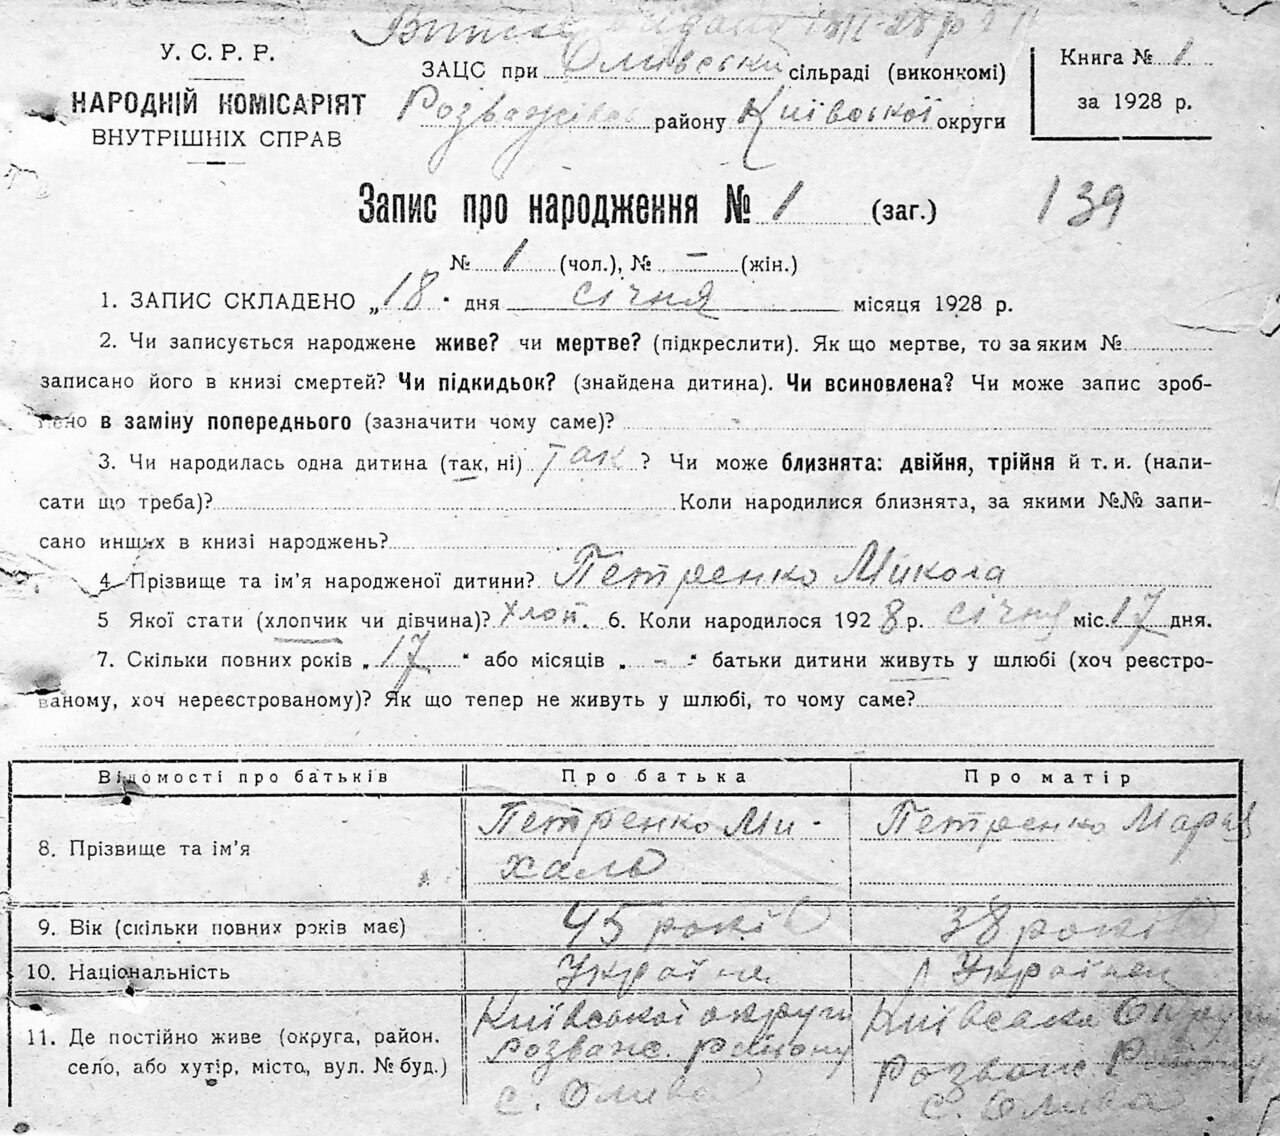 Витяг видано 18/I-28 р
У. С. Р. Р.
НАРОДНІЙ КОМІСАРІЯТ
ВНУТРІШНІХ СПРАВ
ЗАЦС при Оливській сільраді (виконкомі)
Розважівськ району Київської округи
Книга № 1
за 1928 р.
Запис про народження № 1 (заг.)
139
№ 1 (чол.), № – (жін.)
1. ЗАПИС СКЛАДЕНО „18“ дня січня місяця 1928 р.
2. Чи записується народжене живе? чи мертве? (підкреслити). Як що мертве, то за яким №
записано його в книзі смертей? Чи підкидьок? (знайдена дитина). Чи всиновлена? Чи може запис зроб-
лено в заміну попереднього (зазначити чому саме)?
3. Чи народилась одна дитина (так, ні) так ? Чи може близнята: двійня, трійня й т. и. (напи-
сати що треба)? Коли народилися близнята, за якими №№ запи-
сано инших в книзі народжень?
4. Прізвище та ім’я народженої дитини? Петренко Микола
5 Якої стати (хлопчик чи дівчина)? хлоп. 6. Коли народилося 1928 р. січня міс. 17 дня.
7. Скільки повних років „17“ або місяців „-“ батьки дитини живуть у шлюбі (хоч реєстро-
ваному, хоч нереєстрованому)? Як що тепер не живуть у шлюбі, то чому саме?
Відомості про батьків Про батька Про матір
8. Прізвище та ім’я
Петренко Ми-
халь
Петренко Марія
9. Вік (скільки повних років має) 45 років 38 років
10. Національність Україне Українец
11. Де постійно живе (округа, район,
село, або хутір, місто, вул. № буд.)
Київської округи
Розваж. району
с. Олива
Київська Округи
Розваж. Району
с. Олива